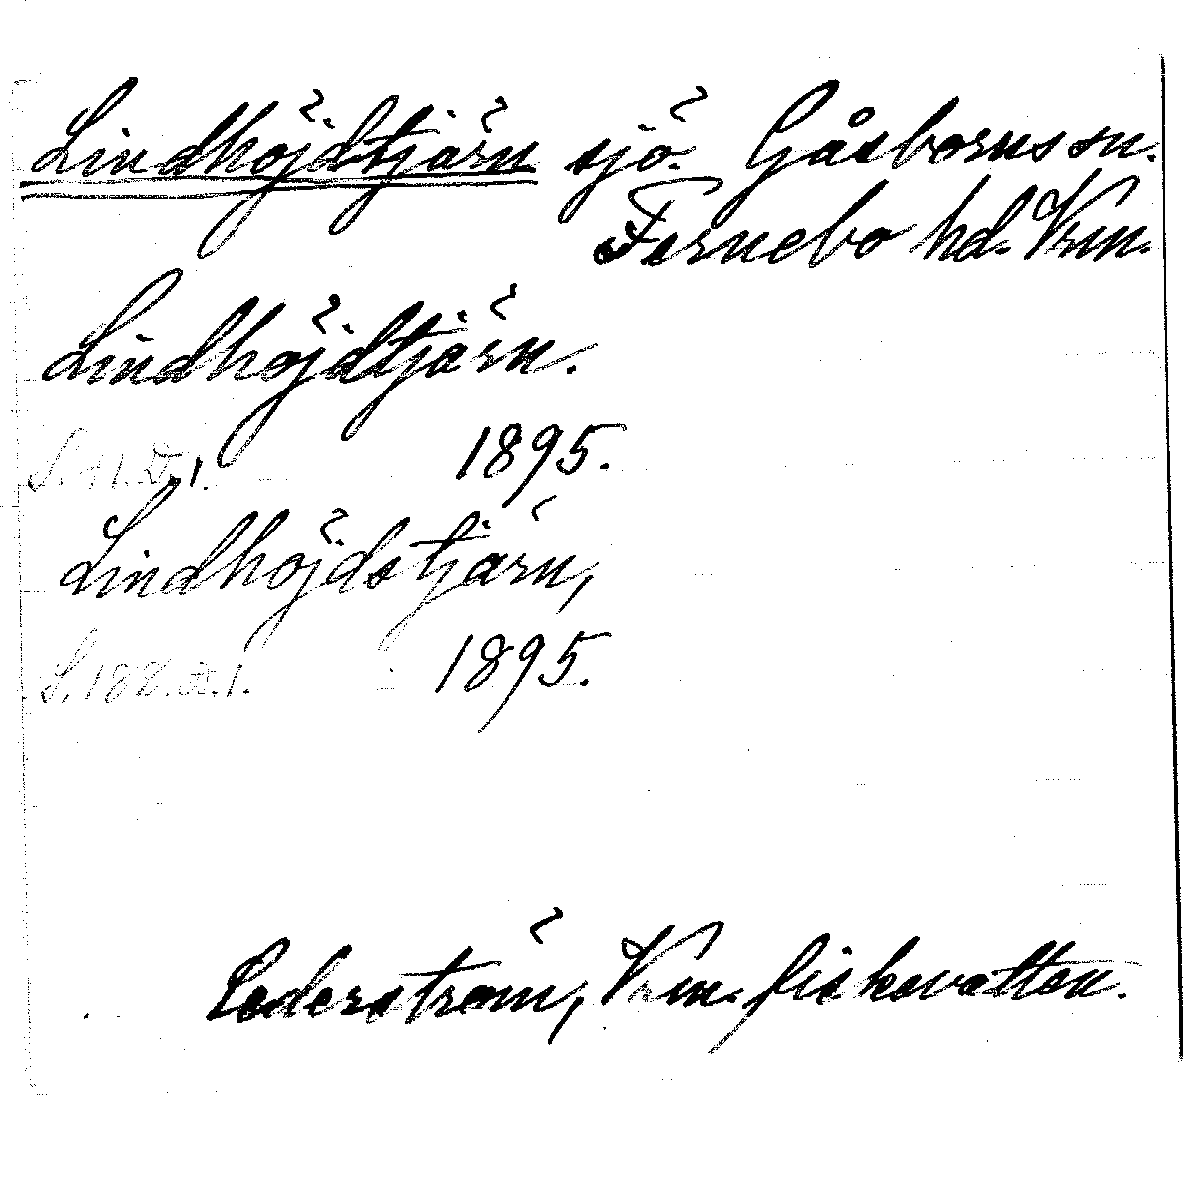 Lindhöjdtjärn sjö. Gåsborns sn.
Fernebo hd. Vrm.
Lindhöjdtjärn.
S. 11. D. 1. 1895.
Lindhöjdstjärn,
S. 188. D. 1. 1895.
Cederström, Vrm. fiskevatten.